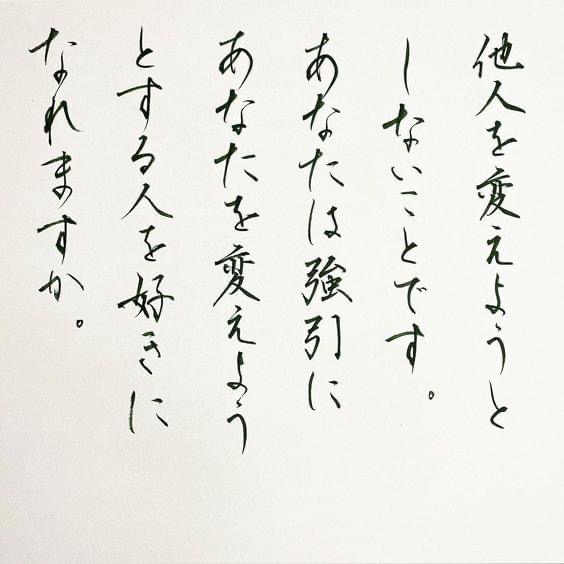 他人を変えようと
しないことです。
あなたは強引に
あなたを変えよう
とする人を好きに
なれますか。